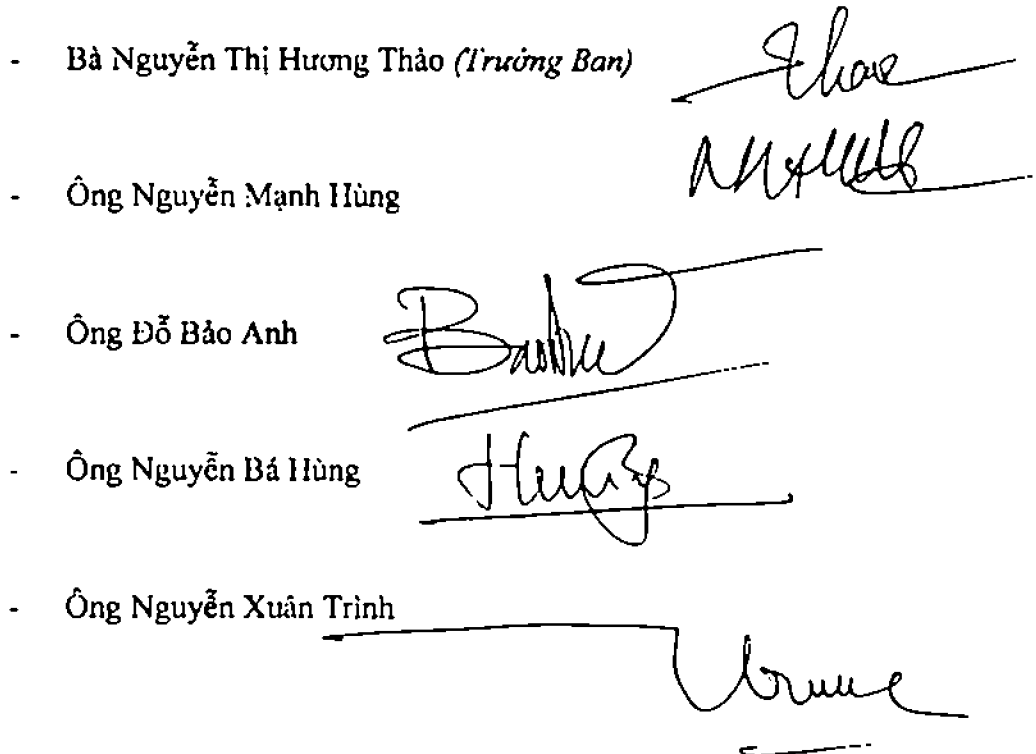 - Bà Nguyễn Thị Hương Thảo (Trưởng Ban)
- Ông Nguyễn Mạnh Hùng
- Ông Đỗ Bảo Anh
- Ông Nguyễn Bá Hùng
- Ông Nguyễn Xuân Trình